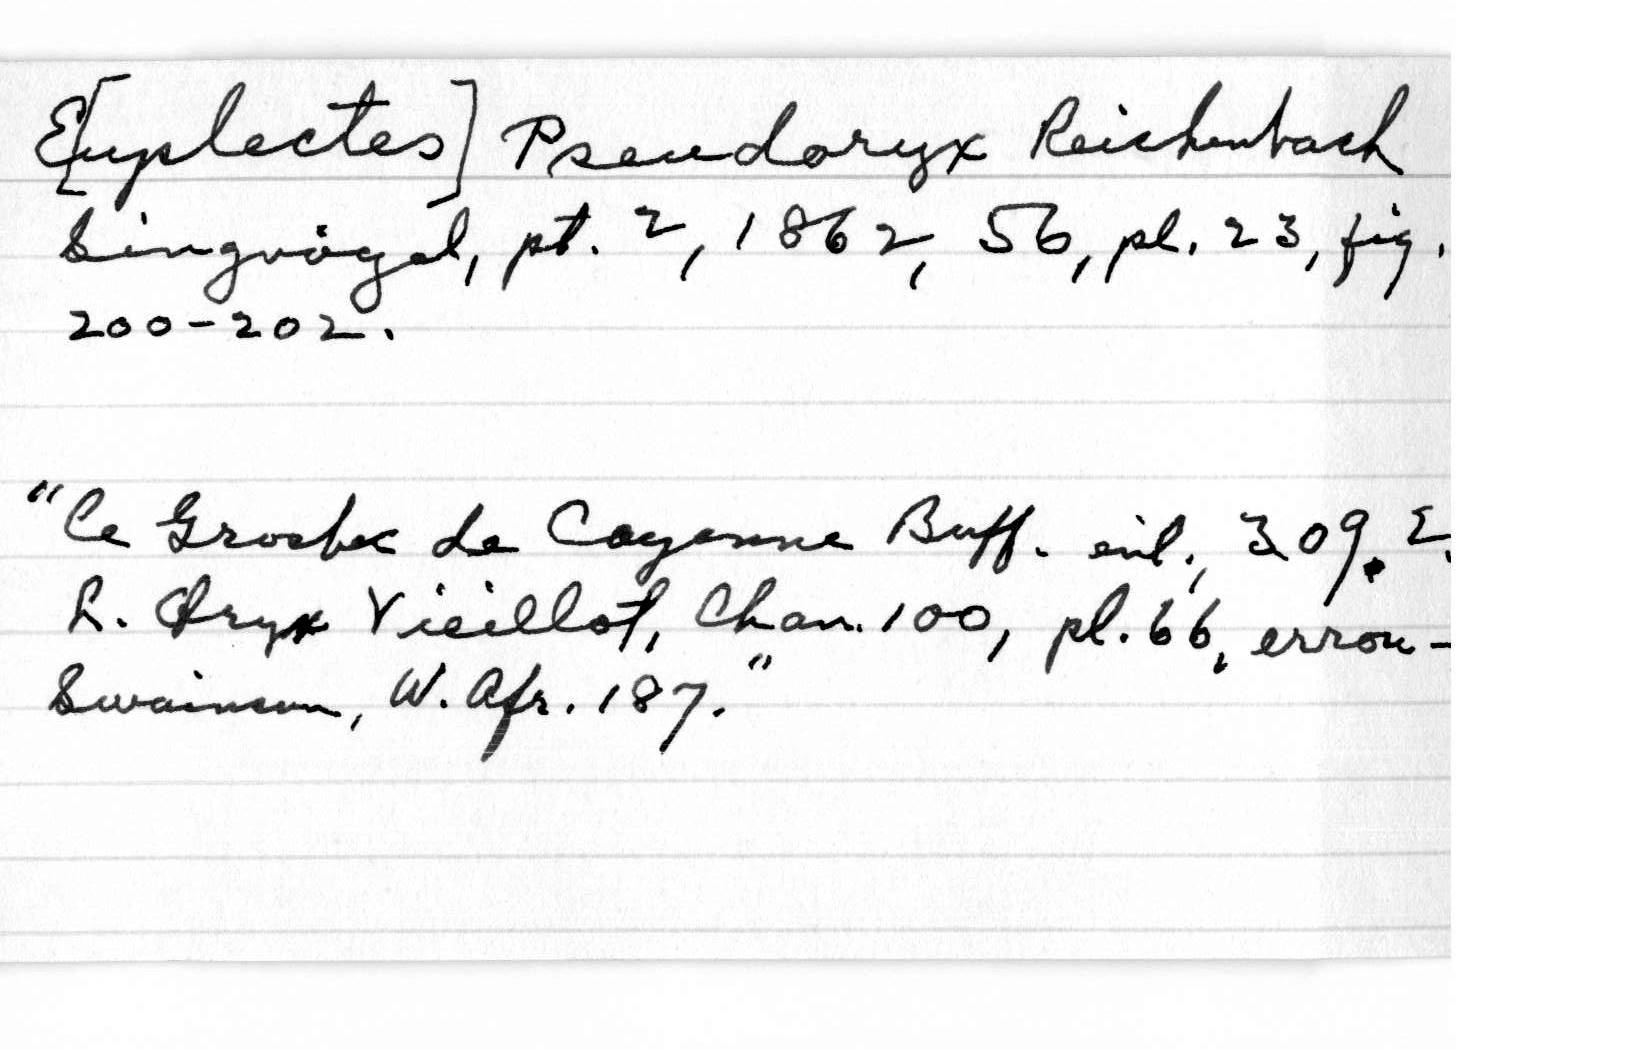 E[uplectes] Pseudoryx Reichenbach
Singvögel, pt. 2, 1862, 56, pl. 23, fig.
200-202.
"Ce Grosbec de Cayenne Buff. enl., 309. E.
L. Oryx Vieillot, Chan. 100, pl. 66, errou-
Swainson, W. Afr. 187."